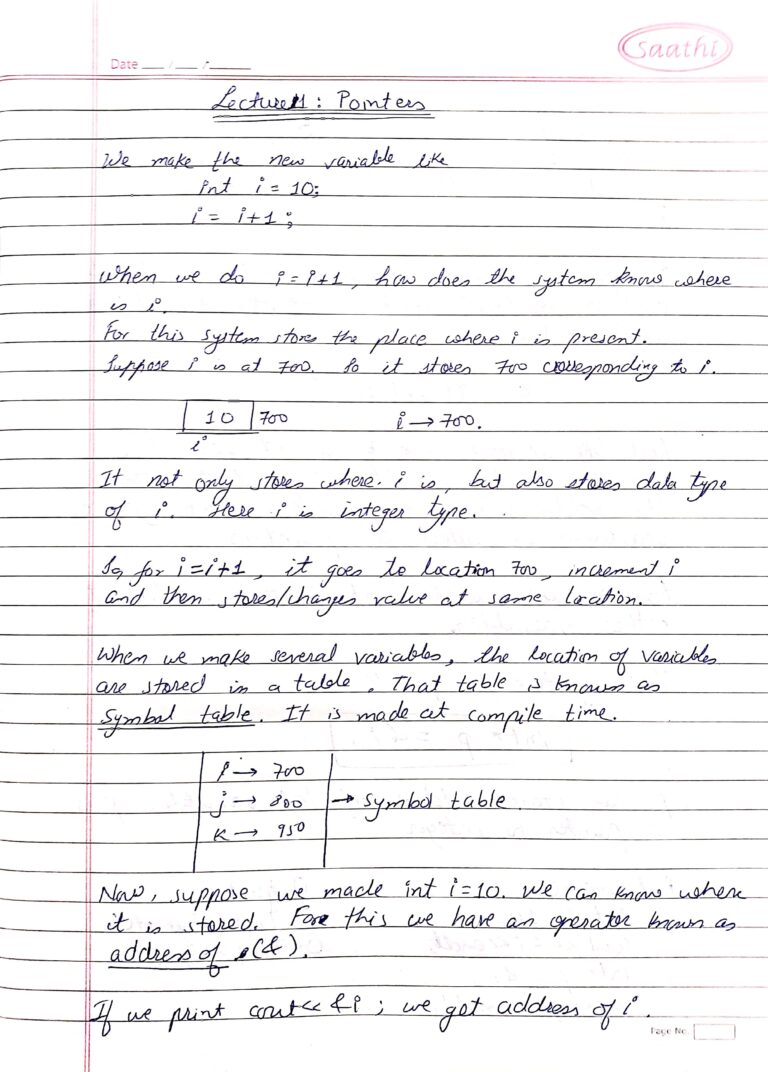 Saathi
Date ___/___/______
Lecture 11: Pointers
We make the new variable like
int i = 10;
i = i+1;
When we do i=i+1, how does the system know where
is i.
For this system stores the place where i is present.
Suppose i is at 700. So it stores 700 corresponding to i.
10 700 i → 700.
i
It not only stores where i is, but also stores data type
of i. Here i is integer type.
So, for i=i+1, it goes to location 700, increment i
and then stores/changes value at same location.
When we make several variables, the location of variables
are stored in a table. That table is known as
symbol table. It is made at compile time.
i → 700
j → 800 → symbol table.
K → 950
Now, suppose we made int i=10. We can know where
it is stored. For this we have an operator known as
address of (&).
If we print cout<< &i; we get address of i.
Page No.